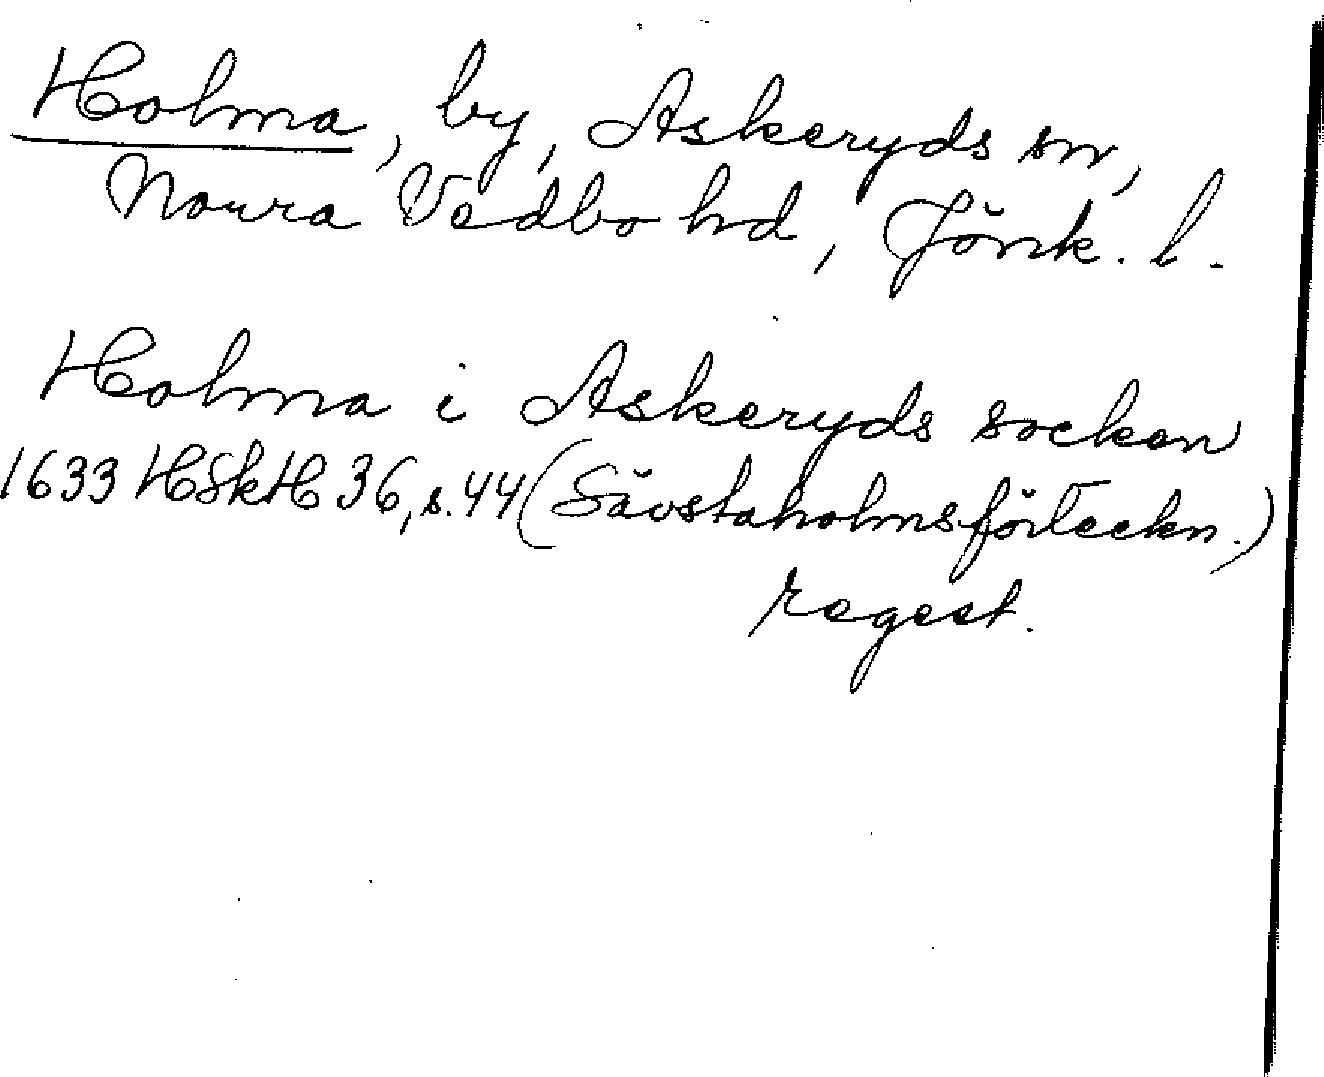 Holma, by, Askeryds sn,
Norra Vedbo hd, Jönk. l.
Holma i Askeryds socken
1633 HSkH 36, s. 44 (Sävstaholmsförteckn.)
regest.